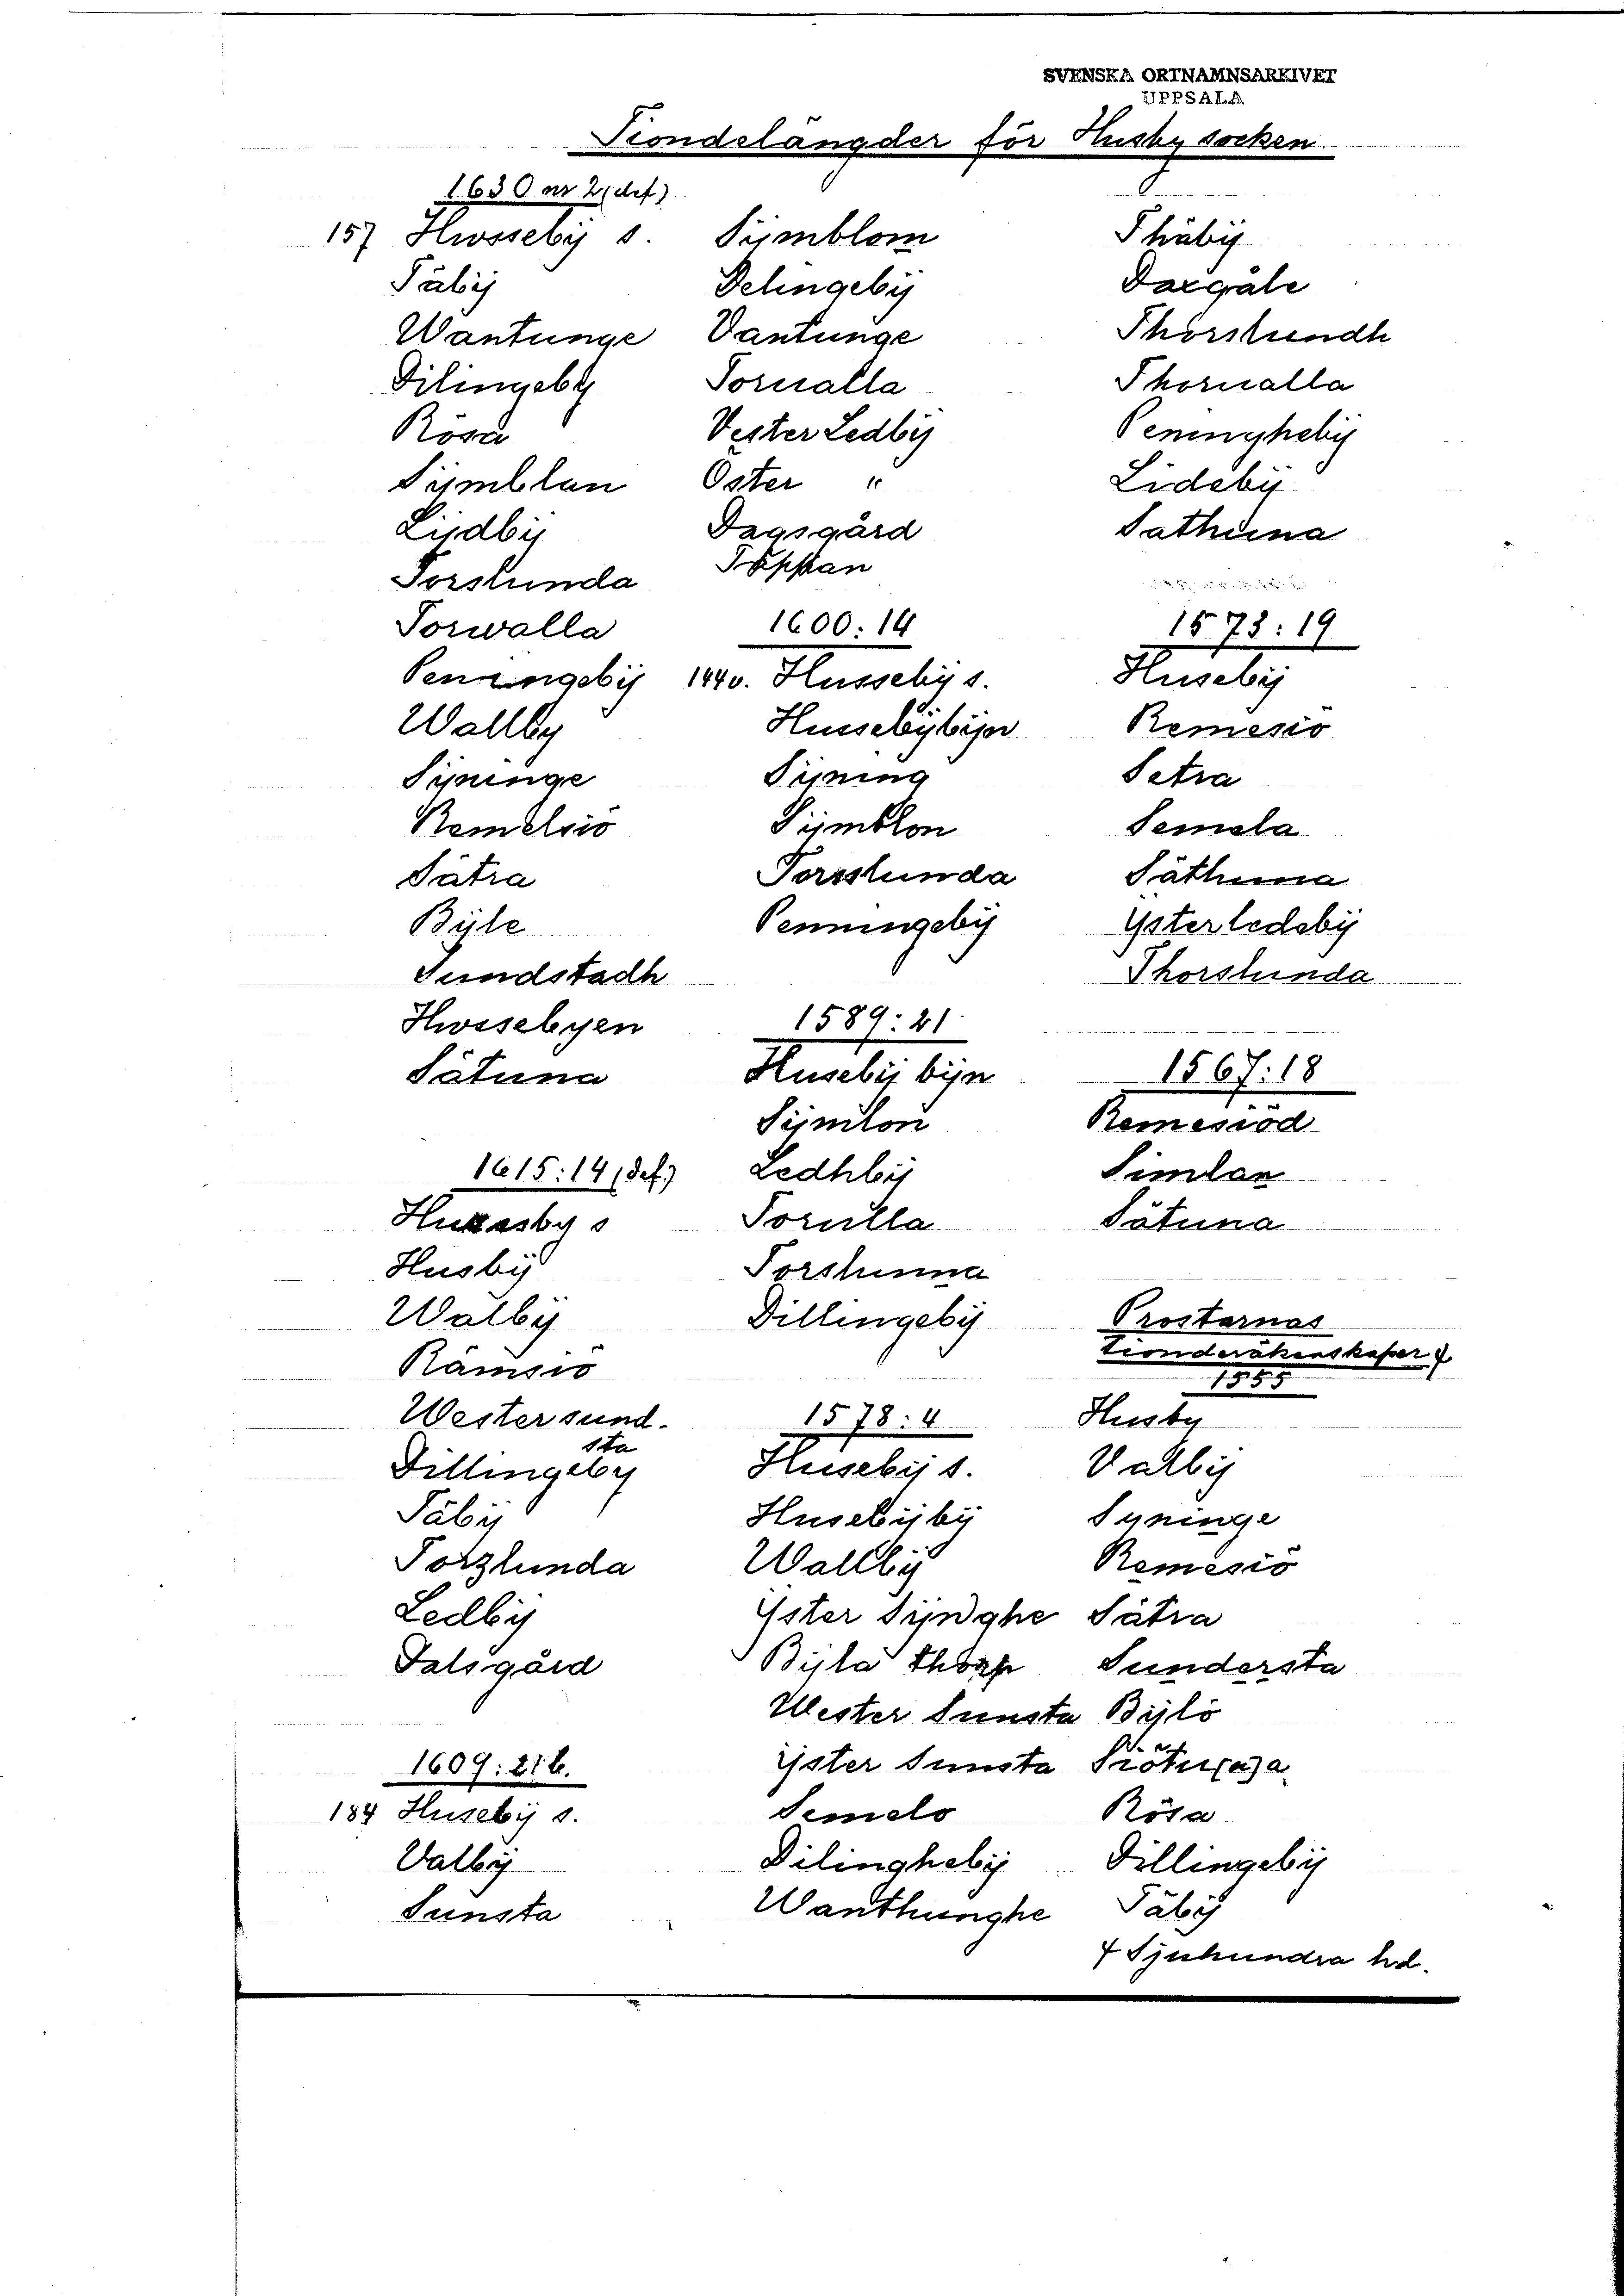 SVENSKA ORTNAMNSARKIVET
UPPSALA
Tiondelängder för Husby socken.
1630 nr 2 (def)
157 Hwssebÿ s.
Täbÿ
Wantunge
Dilingeby
Rösa
Sÿmblan
Lÿdbÿ
Torslunda
Torwalla
Peningebÿ
Wallby
Sÿninge
Remelsiö
Sätra
Bÿle
Sundstadh
Hwssebyen
Sätuna
1615:14 (def.)
Husby s
Husbÿ
Walbÿ
Rämsiö
Westersund-
sta
Dillingeby
Täbÿ
Torzlunda
Ledbÿ
Dalsgård
1609:21b.
184 Husebÿ s.
Valbÿ
Sunsta
Sÿmblom
Delingebÿ
Vantunge
Torualla
Vester Ledbÿ
Öster "
Dagsgård
Täppan
1600:14
144v. Hussebÿ s.
Hussebÿbÿn
Sÿning
Sÿmblon
Torsslunda
Penningebÿ
1589:21
Husebÿ bÿn
Sÿmlon
Ledhbÿ
Torulla
Torslunna
Dillingebÿ
1578:4
Husebÿ s.
Husebÿbÿ
Wallbÿ
Ÿster Sÿnghe
Bÿla thorp
Wester Sunsta
Ÿster Sunsta
Semelo
Dilinghebÿ
Wanthunghe
Thäbÿ
Daxgåle
Thorslundh
Thorualla
Peninghebÿ
Lidebÿ
Sathuna
1573:19
Husebÿ
Remesiö
Setra
Semela
Säthuna
Ÿsterledebÿ
Thorslunda
1567:18
Remesiöd
Simlan
Sätuna
Prostarnas
tionderäkenskaper ⁊
1555
Husby
Valbÿ
Syninge
Remesiö
Sätra
Sundersta
Bÿlö
Siötu(a)a
Rösa
Dillingebÿ
Täbÿ
⁊ Sjuhundra hd.